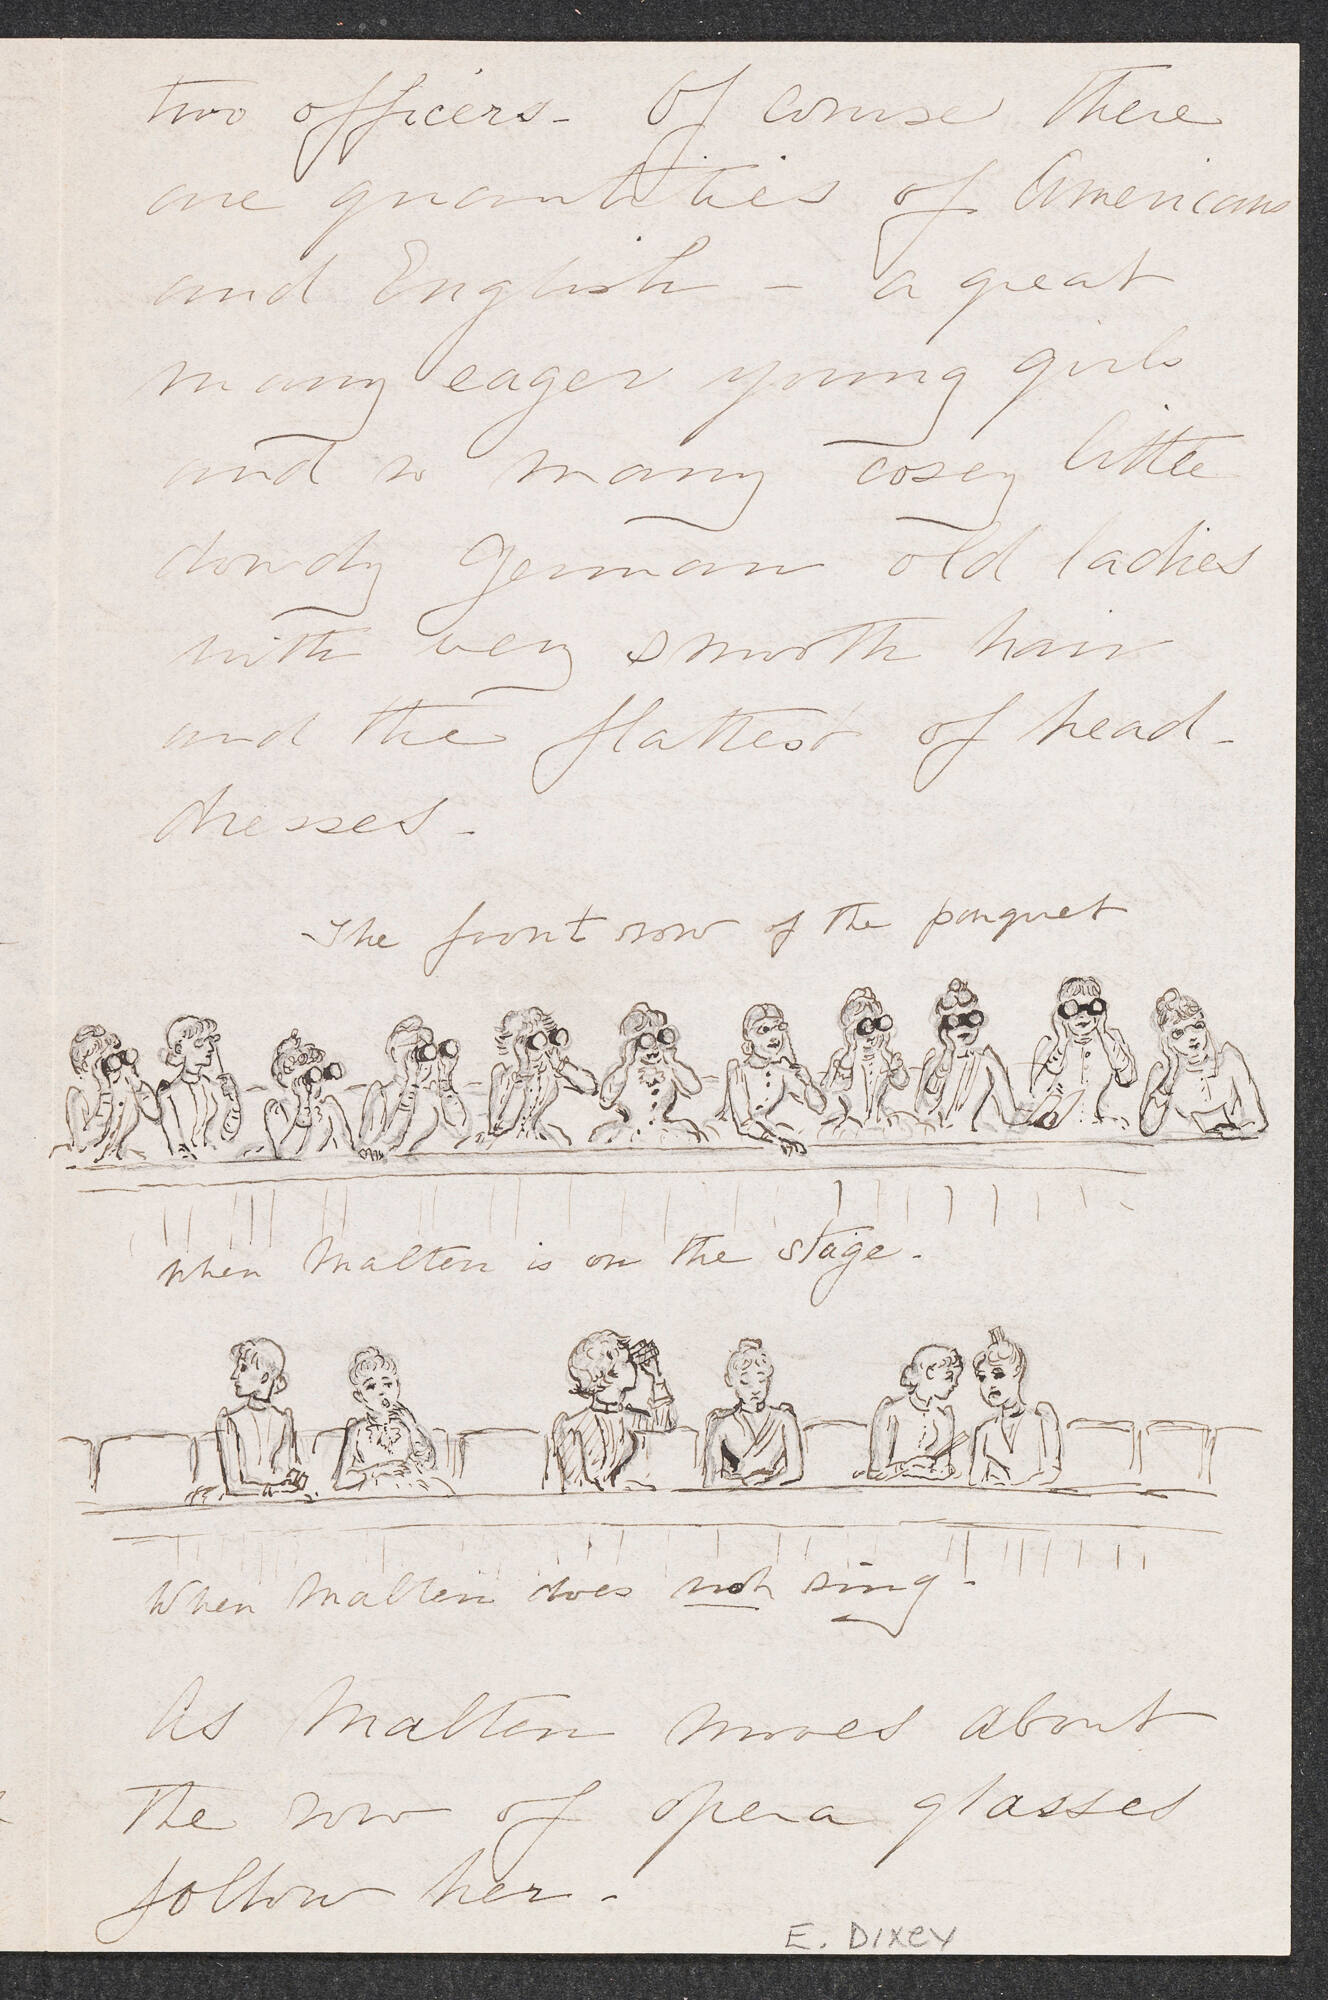 two officers - Of course there
are quantities of Americans
and English - a great
many eager young girls
and so many cosey little
dowdy German old ladies
with very smooth hair
and the flattest of head-
dresses -
The front row of the parquet
when Malten is on the stage.
When Malten does not sing -
As Malten moves about
the row of opera glasses
follow her -
E. DIXEY